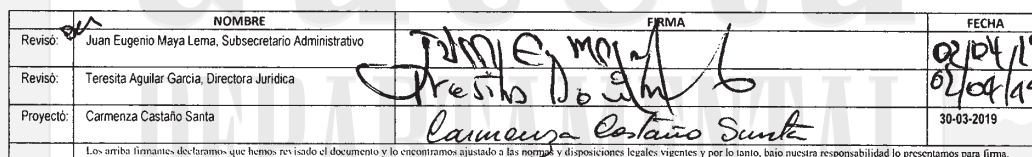 NOMBRE FIRMA FECHA
Revisó: Juan Eugenio Maya Lema, Subsecretario Administrativo 02/04/19
Revisó: Teresita Aguilar Garcia, Directora Jurídica Teresita Aguilar 02/04/19
Proyectó: Carmenza Castaño Santa Carmenza Castaño Santa 30-03-2019
Los arriba firmantes declaramos que hemos revisado el documento y lo encontramos ajustado a las normas y disposiciones legales vigentes y por lo tanto, bajo nuestra responsabilidad lo presentamos para firma.